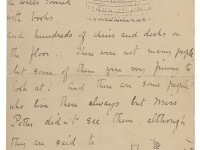 the walls covered
with books,
and hundreds of chairs and desks on
the floor. there were not many people
but some of them were very funny to
look at! and there are some people
who live there always but Miss
Potter didn't see them, although
they are said to